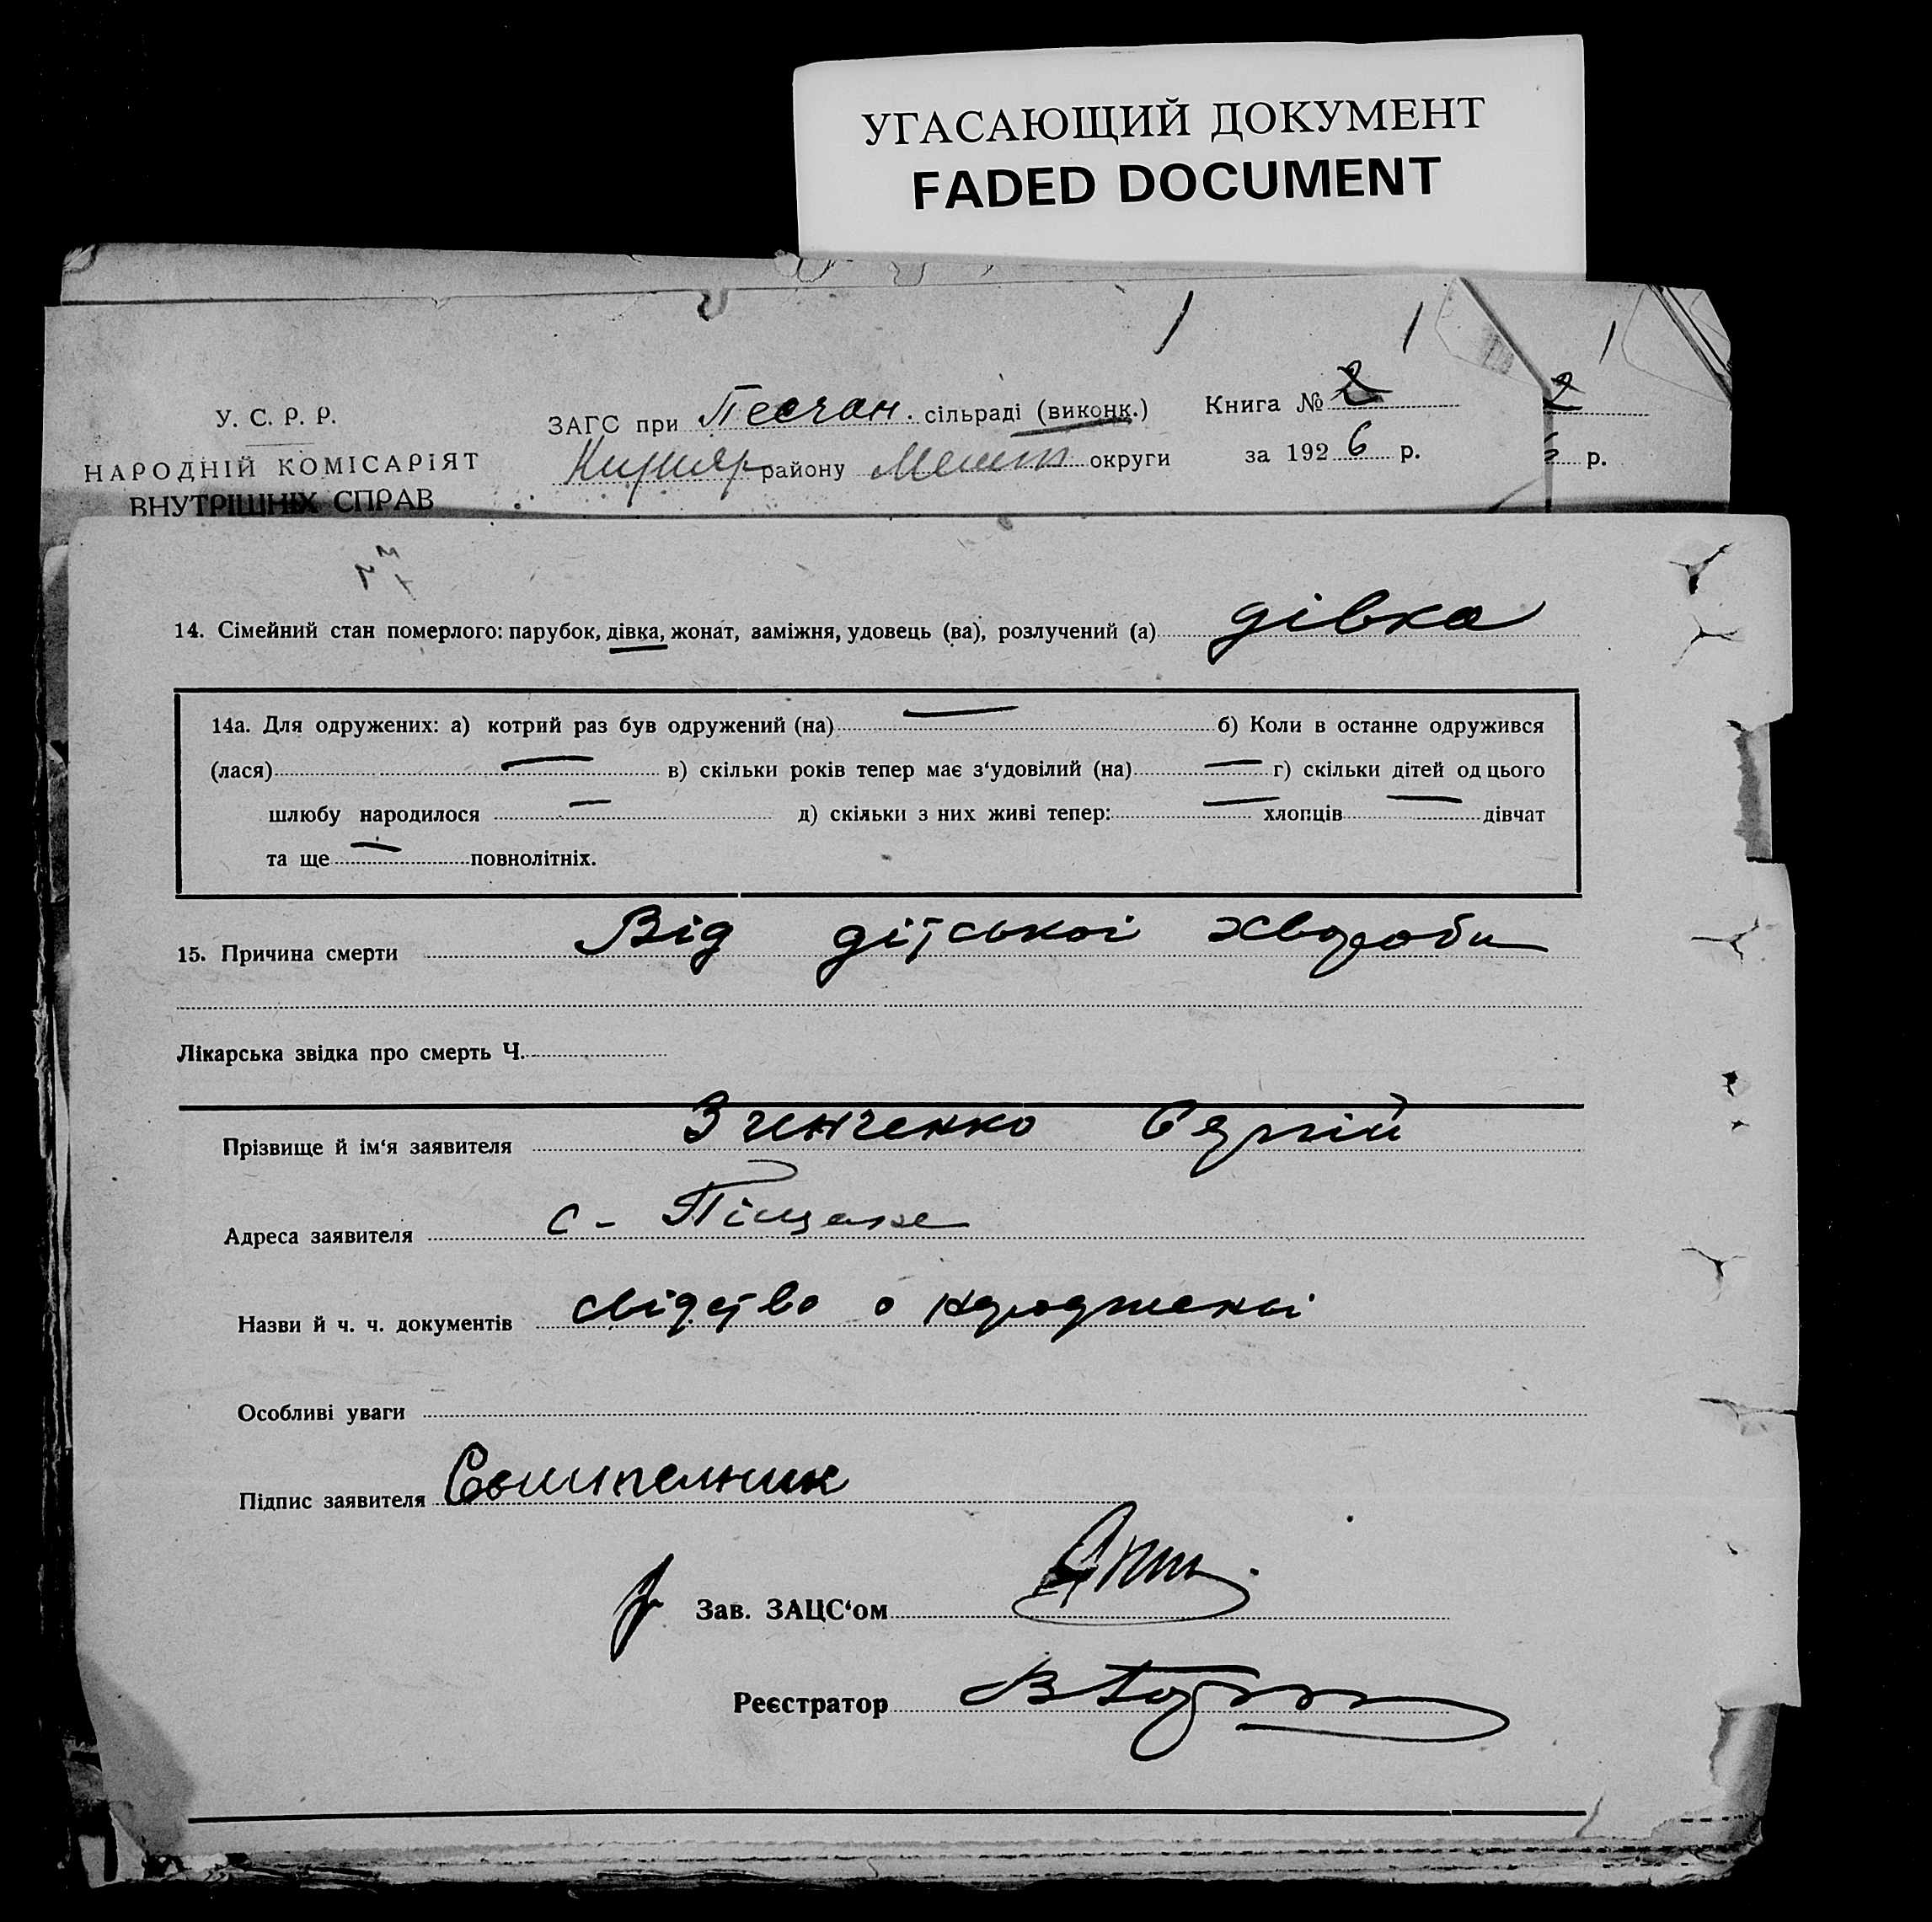 УГАСАЮЩИЙ ДОКУМЕНТ
FADED DOCUMENT
У. С. Р. Р.
НАРОДНІЙ КОМІСАРІЯТ
ВНУТРІШНІХ СПРАВ
ЗАГС при Песчан. сільраді (виконк.)
району округи
Книга № 2
за 1926 р.
2
р.
14. Сімейний стан померлого: парубок, дівка, жонат, заміжня, удовець (ва), розлучений (а) дівка
14а. Для одружених: а) котрий раз був одружений (на) — б) Коли в останне одружився
(лася) — в) скільки років тепер має з‘удовілий (на) — г) скільки дітей од цього
шлюбу народилося — д) скільки з них живі тепер: — хлопців — дівчат
та ще — повнолітніх.
15. Причина смерти Від дітської хвороби
Лікарська звідка про смерть Ч.
Прізвище й ім‘я заявителя Зінченко Сергій
Адреса заявителя с - Піщане
Назви й ч. ч. документів свідство о народженні
Особливі уваги
Підпис заявителя
Зав. ЗАЦС‘ом
Реєстратор